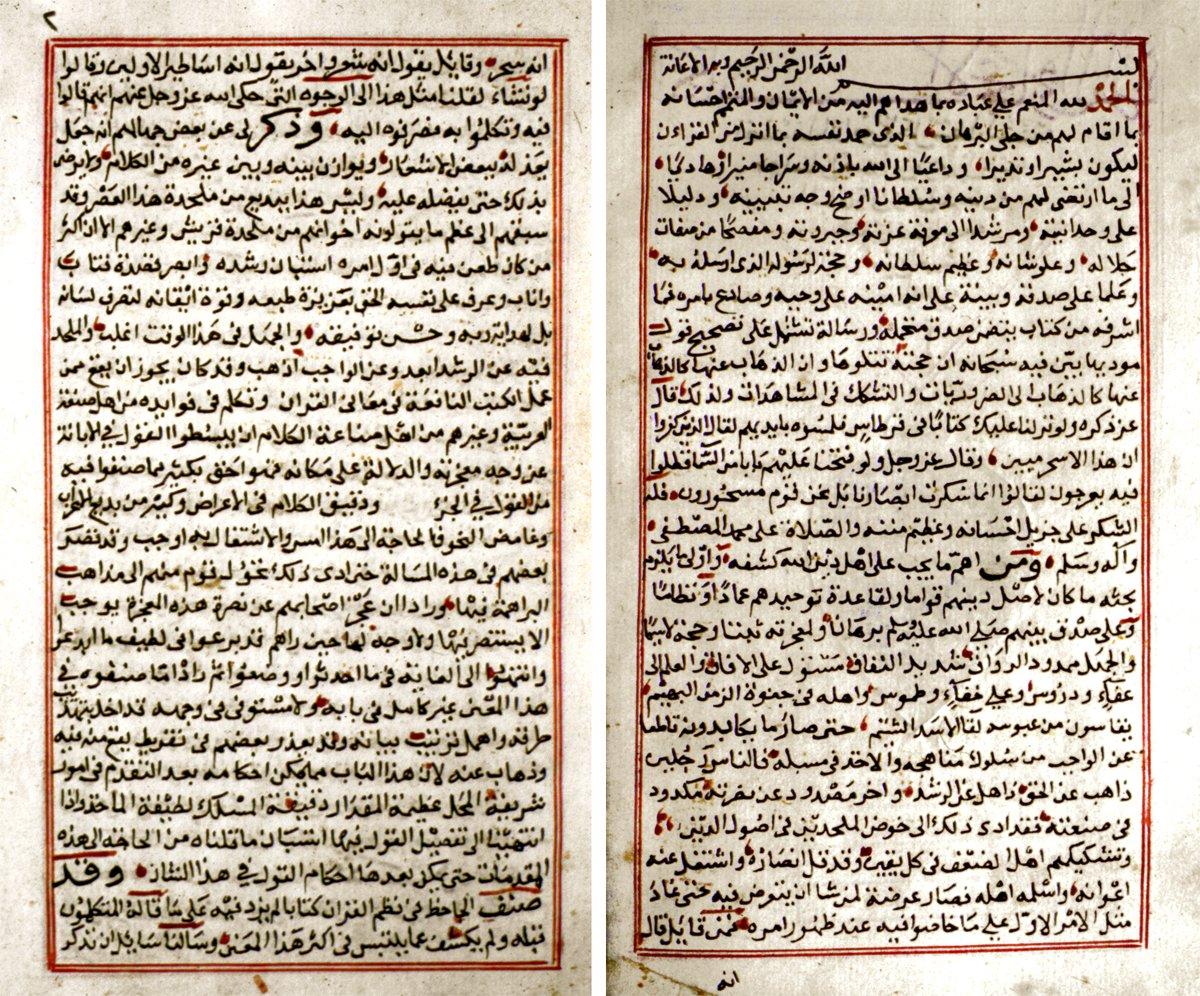 بسم الله الرحمن الرحيم وبه الاعانة
الحمد لله المنعم على عباده بما هداهم اليه من الايمان والمتمم احسانه
بما اقام لهم من جلى البرهان الذى حمد نفسه بما انزل من القران
ليكون بشيرا ونذيرا وداعيا الى الله باذنه وسراجا منيرا هاديا
الى ما ارتضى لهم من دينه وسلطانا اوضح وجه تبيينه ودليلا
على وحدانيته ومرشدا الى معرفة عزته وجبروته ومفصحا من صفات
جلاله وعلو شانه وعظيم سلطانه وحجة لرسوله الذى ارسله به
وعلما على صدقه وبينة على انه امينه على وحيه وصادع بامره فما
اشرفه من كتاب يتضمن صدق متحمله ورسالة تشتمل على تصحيح قول
موديها بين فيه سبحانه ان حجته تتلوها وان الذهاب عنها كالذهاب
عنها كالذهاب الى الضروريات والتشكك فى المشاهدات ولذلك قال
عز ذكره ولو نزلنا عليك كتابا فى قرطاس فلمسوه بايديهم لقال الذين كفروا
ان هذا الا سحر مبين وقال عز وجل ولو فتحنا عليهم بابا من السما فظلوا
فيه يعرجون لقالوا انما سكرت ابصارنا بل نحن قوم مسحورون فله
الشكر على جزيل احسانه وعظيم مننه والصلاة على محمد المصطفى
واله وسلم ومن اهم ما يجب على اهل دين الله كشفه واولى ما يلزم
بحثه ما كان لاصل دينهم قواما ولقاعدة توحيدهم عمادا او نظاما
وعلى صدق نبيهم صلى الله عليه وسلم برهانا ولمعجزته ثبتا وحجة لاسيما
والجهل ممدود الرواق شديد النفاق مستول على الافاق والعلم الى
عفاء ودروس وعلى خفاء وطموس واهله فى جفوة الزمن البهيم
يقاسون من عبوسه لقا الاسد الشتيم حتى صار ما يكابدونه قاطعا
عن الواجب من سلوك مناهجه والاخذ فى سبله فالناس رجلين
ذاهب عن الحق ذاهل عن الرشد واخر مصدود عن نصرته مكدود
فى صنعته فقد ادى ذلك الى خوض الملحدين فى اصول الدين
وتشكيكهم اهل الضعف فى كل يقين وقد قل انصاره واشتغل عنه
اعوانه واسلمه اهله فصار عرضة لمن شا ان يتعرض فيه حتى عاد
مثل الامر الاول على ما خاضوا فيه عند ظهور امره فمن قايل قال
انه
٢
انه سحر وقايل يقول انه شعر واخر يقول انه اساطير الاولين وقالوا
لو نشاء لقلنا مثل هذا الى الوجوه التى حكى الله عز وجل عنهم انهم قالوا
فيه وتكلموا به فصرفوه اليه وذكر لى عن بعض جهالهم انه جعل
يعدله ببعض الاشعار ويوازن بينه وبين غيره من الكلام ولا يرضى
بذلك حتى يفضله عليه وليس هذا ببديع من ملحدة هذا العصر وقد
سبقهم الى عظم ما يقولونه اخوانهم من ملحدة قريش وغيرهم الا ان اكثر
من كان طعن فيه فى اول امره استبان رشده وابصر قصده فتاب
واناب وعرف على نفسه الحق بغريزة طبعه وقوة اتقانه لتصرف لسانه
بل لهداية ربه وحسن توفيقه والجهل فى هذا الوقت اغلب والملحد
فيه عن الرشد ابعد وعن الواجب اذهب وقد كان يجوز ان يقع ممن
عمل الكتب النافعة فى معانى القران وتكلم فى فوايده من اهل صنعة
العربية وغيرهم من اهل صناعة الكلام ان يبسطوا القول فى الابانة
عن وجه معجزته والدلالة على مكانه فهو احق بكثير مما صنفوا فيه
من القول فى الجزء ودقيق الكلام فى الاعراض وكثير من بديع الاعراب
وغامض النحو فالحاجة الى هذا امس والاشتغال به اوجب وقد قصر
بعضهم فى هذه المسالة حتى ادى ذلك تحول قوم منهم الى مذاهب
البراهمة فيها وراوا ان عجز اصحابهم عن نصرة هذه المعجزة يوجب
الا يستنصر فيها ولا وجه لها حين راهم قد برعوا فى لطيف ما ابدعوا
وانتهوا الى الغاية فى ما احدثوا ووضعوا ثم راوا ما صنفوه فى
هذا المعنى غير كامل فى بابه ولا مستوفى فى وجهه قد اخل بتهذيب
طرقه واهمل ترتيب بيانه وقد يعذر بعضهم فى تفريط يقع منه فيه
وذهاب عنه لان هذا الباب مما يمكن احكامه بعد التقدم فى امور
شريفة المحل عظيمة المقدار دقيقة المسلك لطيفة الماخذ واذا
انتهينا الى تفصيل القول فيها استبان ما قلناه من الحاجه الى هذه
المقدمات حتى يمكن بعدها احكام القول فى هذا الشان وقد
صنف الجاحظ فى نظم القران كتابا لم يزد فيه على ما قاله المتكلمون
قبله ولم يكشف عما يلتبس فى اكثر هذا المعنى وسالنا سايل ان نذكر